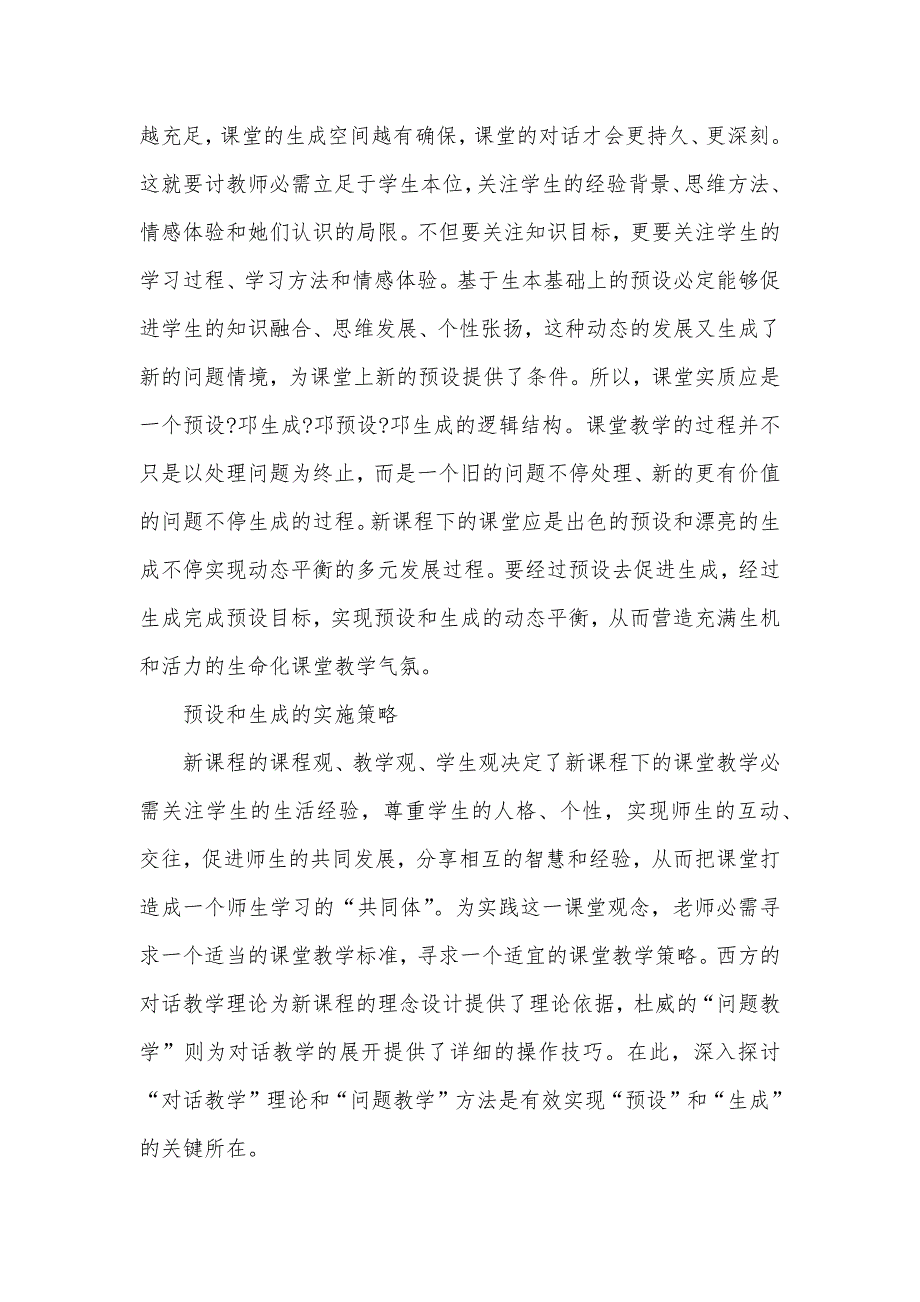 越充足，课堂的生成空间越有确保，课堂的对话才会更持久、更深刻。
这就要讨教师必需立足于学生本位，关注学生的经验背景、思维方法、
情感体验和她们认识的局限。不但要关注知识目标，更要关注学生的
学习过程、学习方法和情感体验。基于生本基础上的预设必定能够促
进学生的知识融合、思维发展、个性张扬，这种动态的发展又生成了
新的问题情境，为课堂上新的预设提供了条件。所以，课堂实质应是
一个预设?邛生成?邛预设?邛生成的逻辑结构。课堂教学的过程并不
只是以处理问题为终止，而是一个旧的问题不停处理、新的更有价值
的问题不停生成的过程。新课程下的课堂应是出色的预设和漂亮的生
成不停实现动态平衡的多元发展过程。要经过预设去促进生成，经过
生成完成预设目标，实现预设和生成的动态平衡，从而营造充满生机
和活力的生命化课堂教学气氛。
预设和生成的实施策略
新课程的课程观、教学观、学生观决定了新课程下的课堂教学必
需关注学生的生活经验，尊重学生的人格、个性，实现师生的互动、
交往，促进师生的共同发展，分享相互的智慧和经验，从而把课堂打
造成一个师生学习的“共同体”。为实践这一课堂观念，老师必需寻
求一个适当的课堂教学标准，寻求一个适宜的课堂教学策略。西方的
对话教学理论为新课程的理念设计提供了理论依据，杜威的“问题教
学”则为对话教学的展开提供了详细的操作技巧。在此，深入探讨
“对话教学”理论和“问题教学”方法是有效实现“预设”和“生成”
的关键所在。